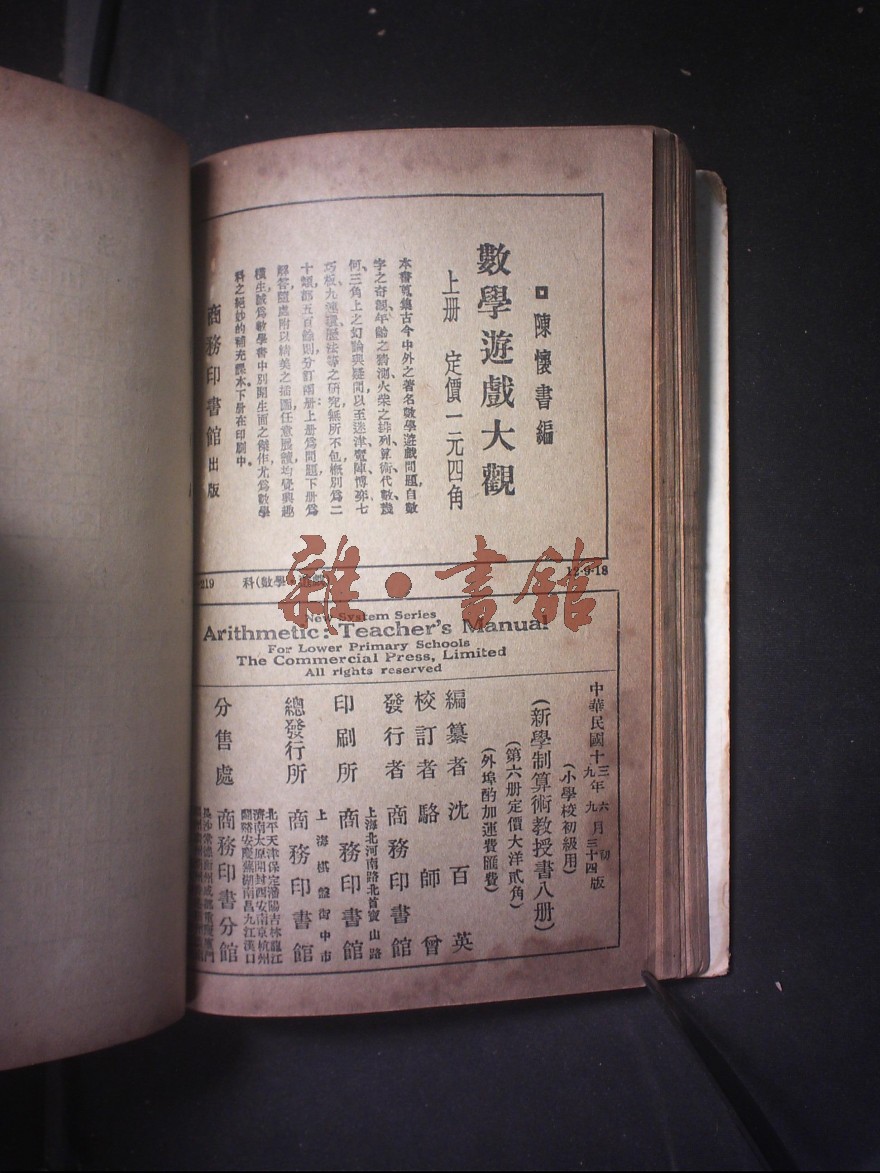 陳懷書編
數學遊戲大觀
上册 定價一元四角
本書蒐集古今中外之著名數學遊戲問題,自數
字之奇趣、年齡之猜測、火柴之排列、算術、代數、幾
何、三角上之幻論與疑問,以至迷津、魔陣、博弈、七
巧板、九連環、曆法等之研究,無所不包,概別爲二
十類,都五百餘則,分訂兩册:上册爲問題,下册爲
解答,隨處附以精美之插圖,任意展讀,均覺興趣
橫生,誠爲數學書中別開生面之傑作,尤爲數學
科之絕妙的補充課本,下册在印刷中。
商務印書館出版
219
科(數學
12-9-18
雜·書館
New System Series
Arithmetic: Teacher's Manual
For Lower Primary Schools
The Commercial Press, Limited
All rights reserved
中華民國十三年六月初版
九年九月三十四版
(小學校初級用)
(新學制算術教授書八册)
(第六册定價大洋貳角)
(外埠酌加運費匯費)
編纂者 沈百英
校訂者 駱師曾
發行者 商務印書館
上海北河南路北首寶山路
印刷所 商務印書館
上海棋盤街中市
總發行所 商務印書館
北平天津保定瀋陽吉林龍江
濟南太原開封西安南京杭州
蘭谿安慶蕪湖南昌九江漢口
分售處 商務印書分館